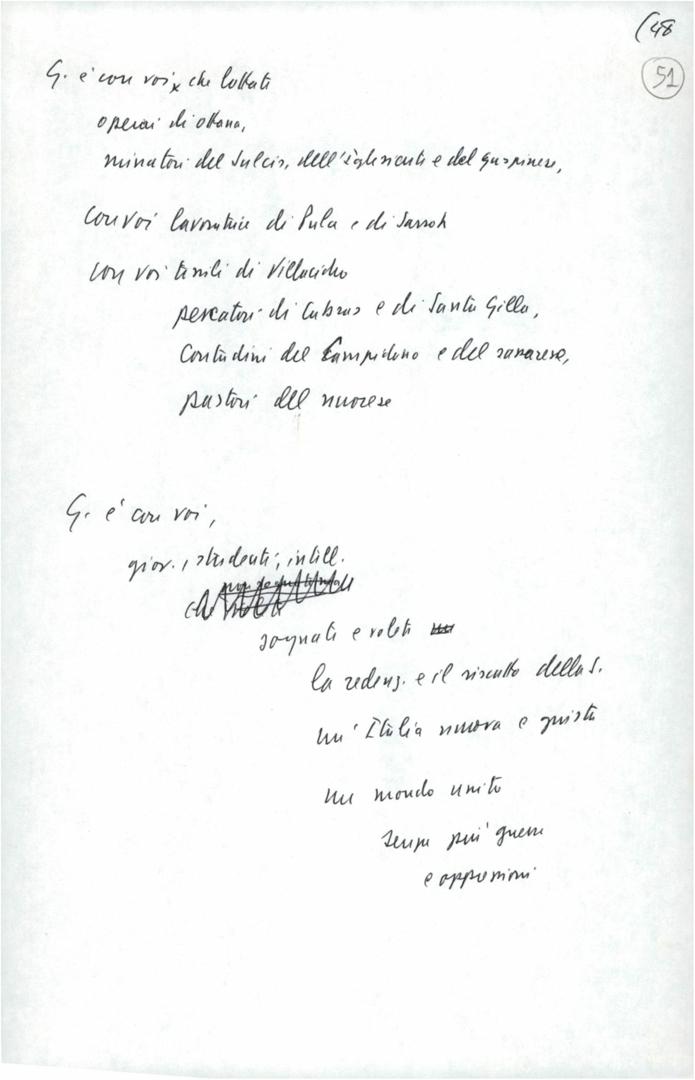 (48
51
G. è con voi, che lottate
operai di Ottana,
minatori del Sulcis, dell'Iglesiente e del guspinese,
con voi lavoratrici di Pula e di Sarroch
con voi tessili di Villacidro
pescatori di Cabras e di Santa Gilla,
contadini del Campidano e del sassarese,
pastori del nuorese
G. è con voi,
giov., studenti, intell.
che
sognate e volete
la redenz. e il riscatto della S.
un' Italia nuova e giusta
un mondo unito
senza più guerre
e oppressioni